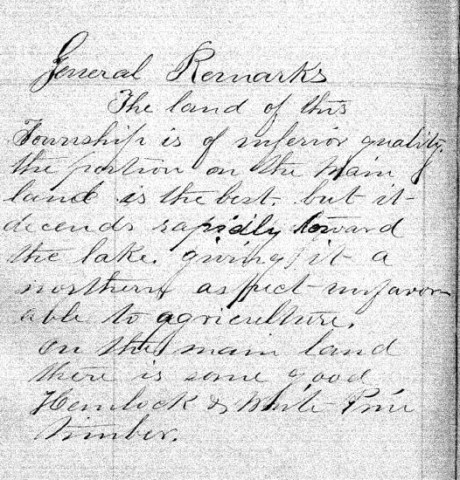 General Remarks
The land of this
Township is of inferior quality.
the portion on the main
land is the best. but it
decends rapidly toward
the lake. giving it a
northern aspect unfavor
able to agriculture.
On the main land
there is some good
Hemlock & White Pine
timber.